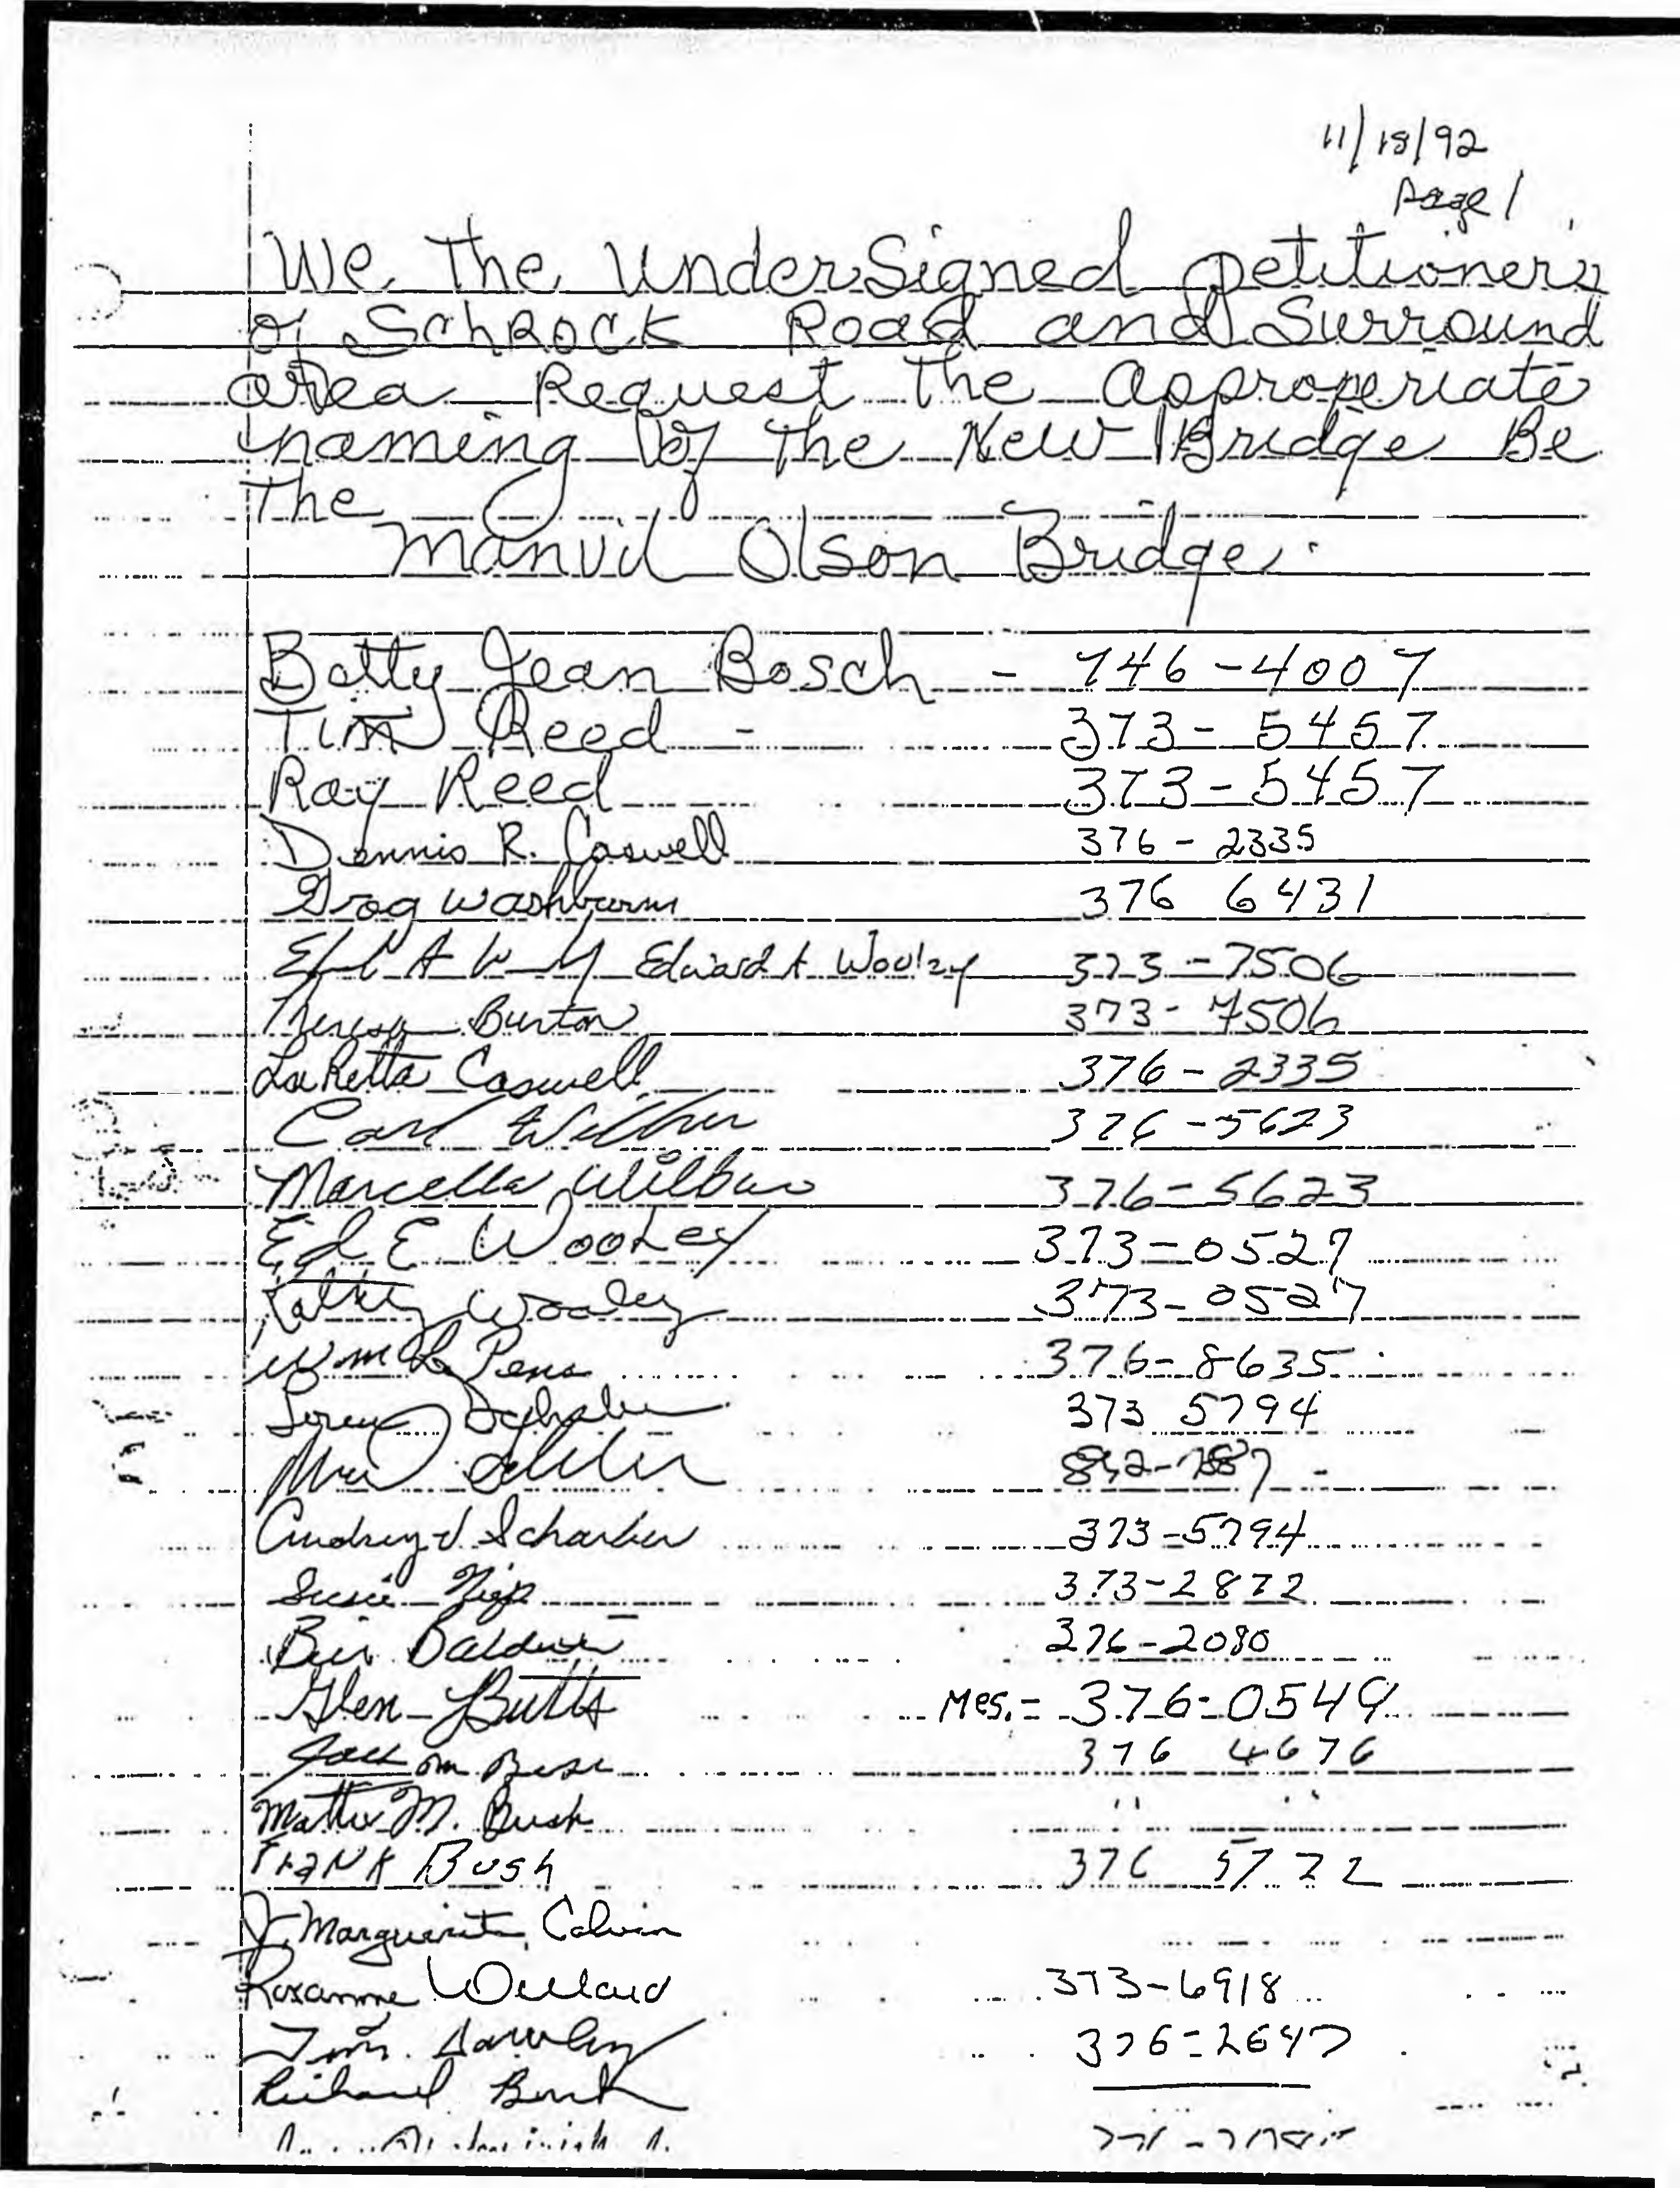 11/18/92
Page 1
We The UnderSigned petitioners
of SchRock Road and Surround
area Request The Approperiate
naming of The New Bridge Be
The
Manvil Olson Bridge.
Betty Jean Bosch - 746-4007
Tim Reed - 373-5457
Ray Reed 373-5457
Dennis R. Caswell 376-2335
Washburn 376 6431
Edward A Wooley 373-7506
Theresa Burton 373-7506
LaRetta Caswell 376-2335
Carl Wilbur 376-5623
Marcella Wilbur 376-5623
Ed E Wooley 373-0527
Kathy Wooley 373-0527
Wm 376-8635
373 5794
Audrey J. Scharber 373-5794
Susie 373-2872
Baldwin 376-2080
Glen Butts Mes.= 376-0549
376 4676
M. Bush " "
Frank Bush 376 5722
J. Marguerite Colvin
Roxanne Willard 373-6918
Tom 376-2647
Richard